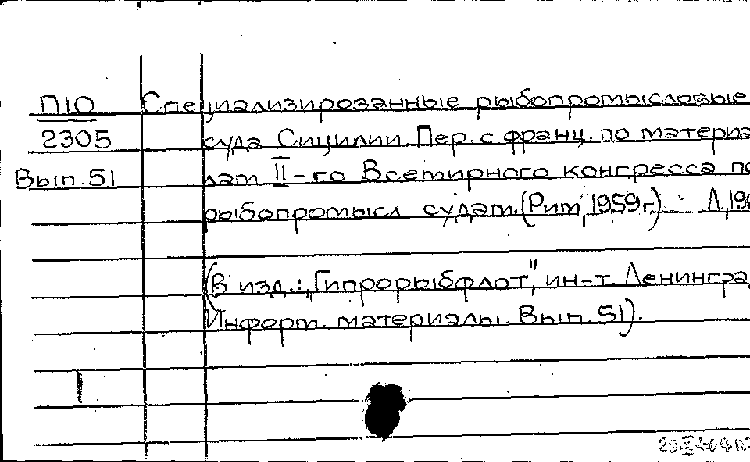 П10 Специализированные рыбопромысловые
2305 суда Сицилии. Пер. с франц. по материа
Вып. 51 лам II-го Всемирного конгресса по
рыбопромысл судам. (Рим, 1959г.) Л, 19
(В изд.: "Гипрорыбфлот", ин-т. Ленингра
Информ. материалы. Вып. 51).